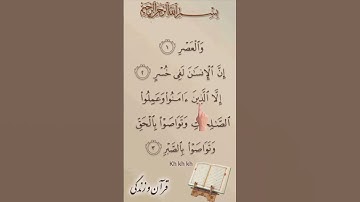 بِسْمِ اللَّهِ الرَّحْمَٰنِ الرَّحِيمِ
وَٱلْعَصْرِ ١
إِنَّ ٱلْإِنسَـٰنَ لَفِى خُسْرٍ ٢
إِلَّا ٱلَّذِينَ ءَامَنُوا۟ وَعَمِلُوا۟
ٱلصَّـٰلِحَـٰتِ وَتَوَاصَوْا۟ بِٱلْحَقِّ
وَتَوَاصَوْا۟ بِٱلصَّبْرِ ٣
Kh kh kh
قرآن و زندگی